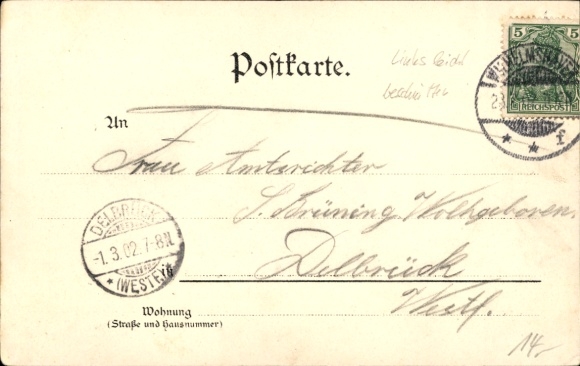 5
REICHSPOST
WILHELMSHAVEN
* * f
Postkarte.
Links
An
Frau Amtsrichter
S. Brüning Wohlgeboren
DELBRÜCK
-1.3.02.7-8N.
* (WESTF) *
Delbrück
Westf.
Wohnung
(Straße und Hausnummer)
14,-